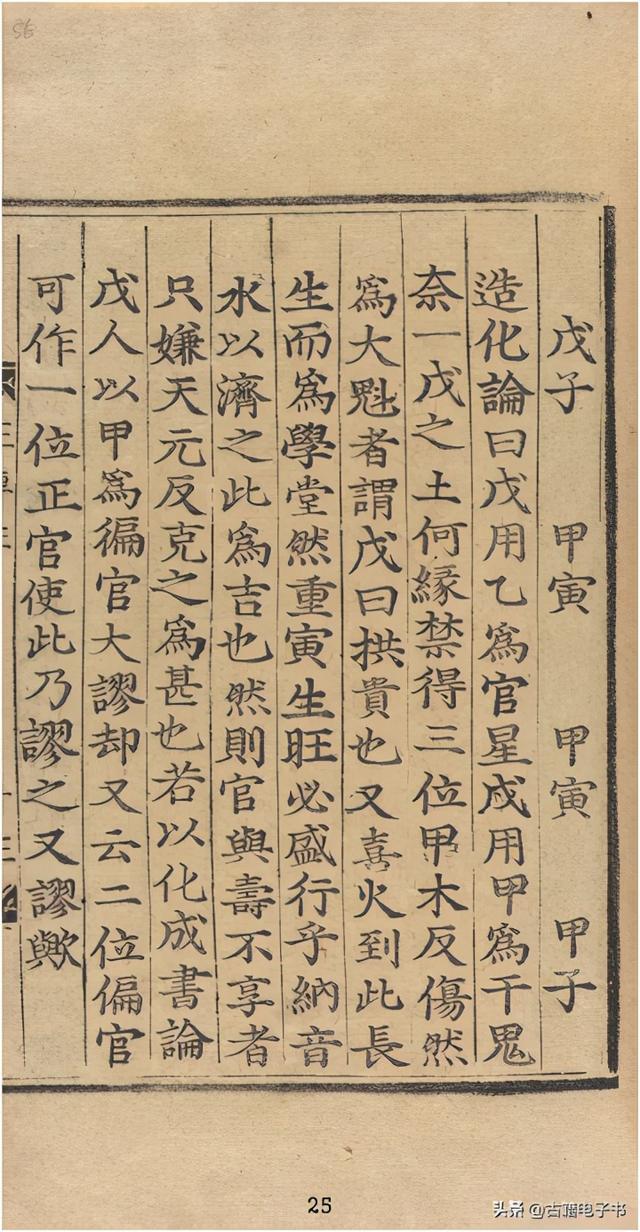 56
戊子　甲寅　甲寅　甲子
造化論曰戊用乙為官星戊用甲為干鬼
奈一戊之土何緣禁得三位甲木反傷然
為大魁者謂戊曰拱貴也又喜火到此長
生而為學堂然重寅生旺必盛行乎納音
水以濟之此為吉也然則官與壽不享者
只嫌天元反克之為甚也若以化成書論
戊人以甲為徧官大謬却又云二位偏官
可作一位正官使此乃謬之又謬歟
25
头条 @古籍电子书